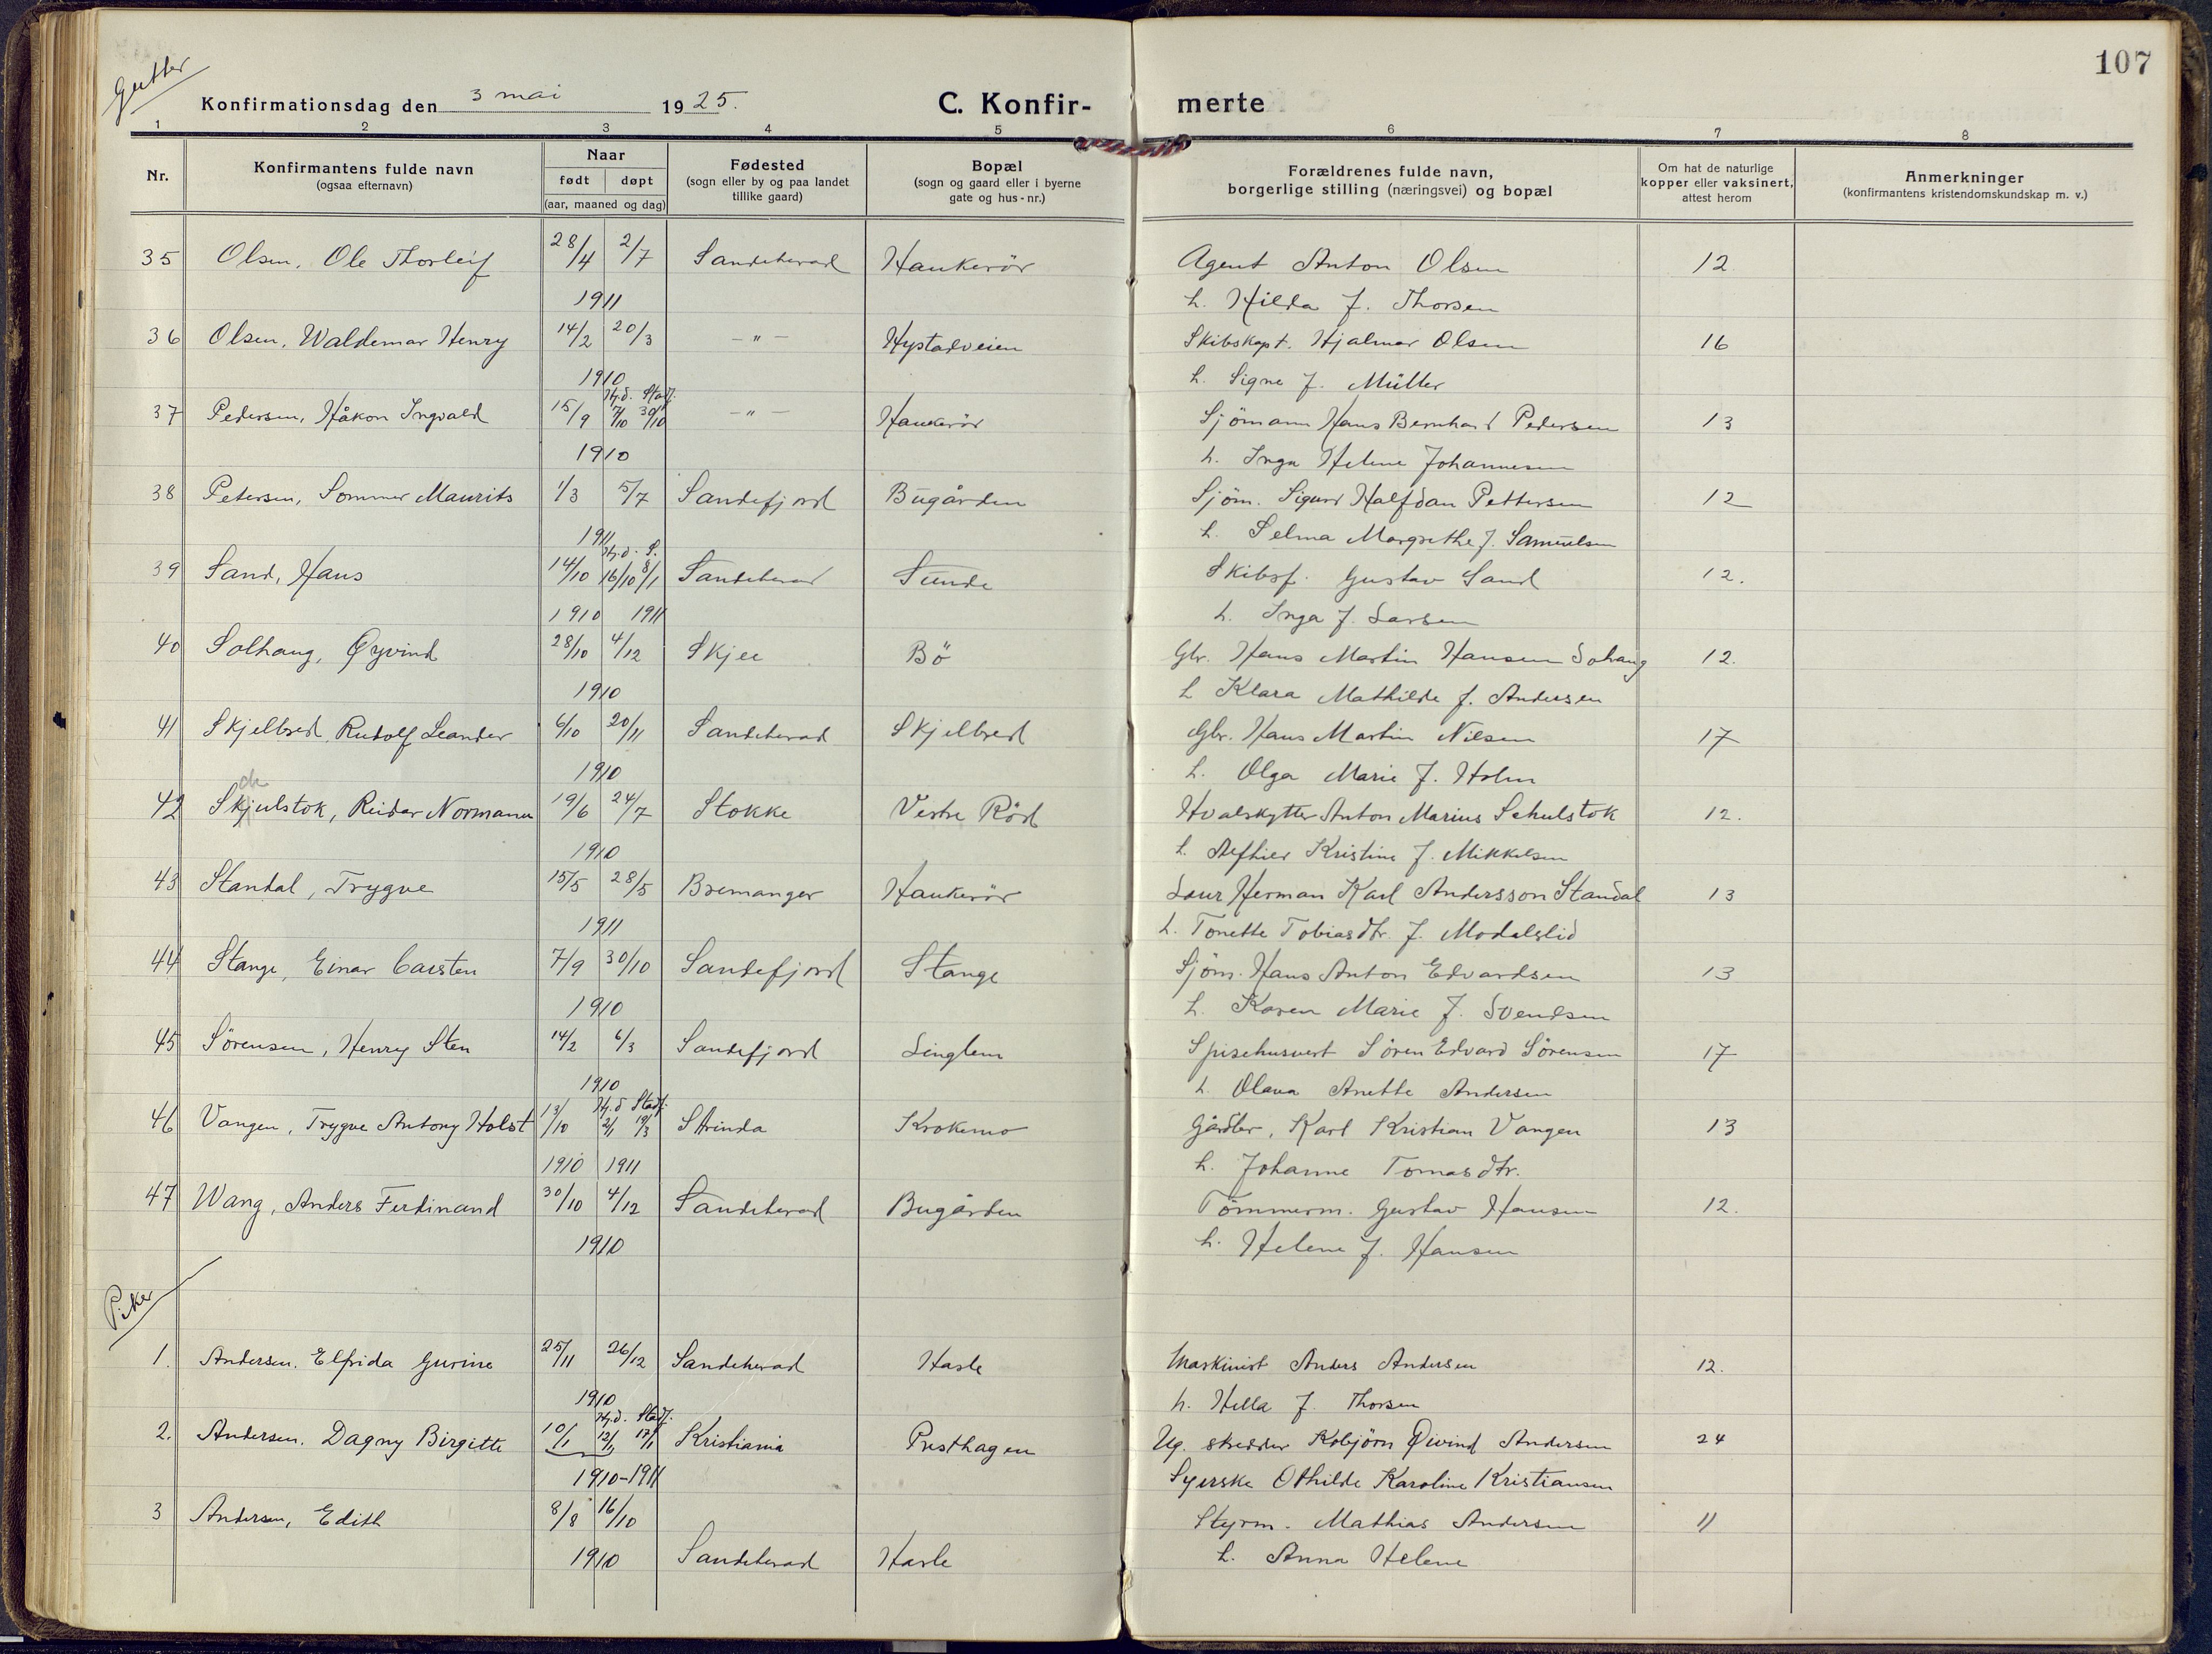 107
Gutter
Konfirmationsdag den 3 mai 1925.
C. Konfir- merte
1 2 3 4 5 6 7 8
Nr.
Konfirmantens fulde navn
(ogsaa efternavn)
Naar
født døpt
(aar, maaned og dag)
Fødested
(sogn eller by og paa landet
tillike gaard)
Bopæl
(sogn og gaard eller i byerne
gate og hus-nr.)
Forældrenes fulde navn,
borgerlige stilling (næringsvei) og bopæl
Om hat de naturlige
kopper eller vaksinert,
attest herom
Anmerkninger
(konfirmantens kristendomskundskap m. v.)
35 Olsen, Ole Thorleif 28/4 2/7 Sandeherad Haukerör Agent Anton Olsen 12
1911 h. Hilda f. Thorsen
36 Olsen, Waldemar Henry 14/2 20/3 — " — Hystadveien Skibskapt. Hjalmar Olsen 16
1910 h. Signe f. Müller
Hj.d. Stadf.
37 Pedersen, Håkon Ingvald 15/9 7/10 30/10 — " — Haukerör Sjömann Hans Bernhard Pedersen 13
1910 h. Inga Helene Johannesen
38 Petersen, Sommer Maurits 1/3 5/7 Sandefjord Bugården Sjöm. Sigurd Halfdan Pettersen 12
1911 h. Selma Margrethe f. Samuelsen
Hj.d. S.
39 Sand, Hans 14/10 16/10 8/1 Sandeherad Sunde Skibsf. Gustav Sand 12.
1910 1911 h. Inga f. Larsen
40 Solhaug, Øyvind 28/10 4/12 Skjee Bö Gbr. Hans Martin Hansen Solhaug 12.
1910 h Klara Mathilde f. Andersen
41 Skjelbred, Rudolf Leander 6/10 20/11 Sandeherad Skjelbred Gbr. Hans Martin Nilsen 17
1910 h. Olga Marie f. Holm
ch
42 Skjulstok, Reidar Normann 19/6 24/7 Stokke Vestre Röd Hvalskytter Anton Marius Schulstok 12.
1910 h. Kristine f. Mikkelsen
43 Standal, Trygve 15/5 28/5 Bremanger Haukerör Herman Karl Andersson Standal 13
1911 h. Tonette Tobiasdtr. f. Modalslid
44 Stange, Einar Carsten 7/9 30/10 Sandefjord Stange Sjöm. Hans Anton Edvardsen 13
1910 h. Karen Marie f. Svendsen
45 Sörensen, Henry Sten 14/2 6/3 Sandefjord Linglem Spisehusvert Sören Edvard Sörensen 17
1910 h. Olava Anette Andersen
Hj.d Stadf.
46 Vangen, Trygve Antony Holst 13/10 2/1 19/3 Strinda Krokemo Gårdbr. Karl Kristian Vangen 13
1910 1911 h. Johanne Tomasdtr.
47 Wang, Anders Ferdinand 30/10 4/12 Sandeherad Bugården Tömmerm. Gustav Hansen 12.
1910 h. Helene f. Hansen
Piker
1. Andersen, Elfrida Gurine 25/11 26/12 Sandeherad Hasle Maskinist Anders Andersen 12.
1910 h. Hella f. Thorsen
Hj.d. Stadf.
2. Andersen, Dagny Birgitte 10/1 12/1 17/1 Kristiania Presthagen Ug. skredder Kobjörn Öivind Andersen 24
1910-1911 Syerske Othilde Karoline Kristiansen
3 Andersen, Edith 8/8 16/10 Styrm. Mathias Andersen 11
1910 Sandeherad Hasle h. Anna Helene